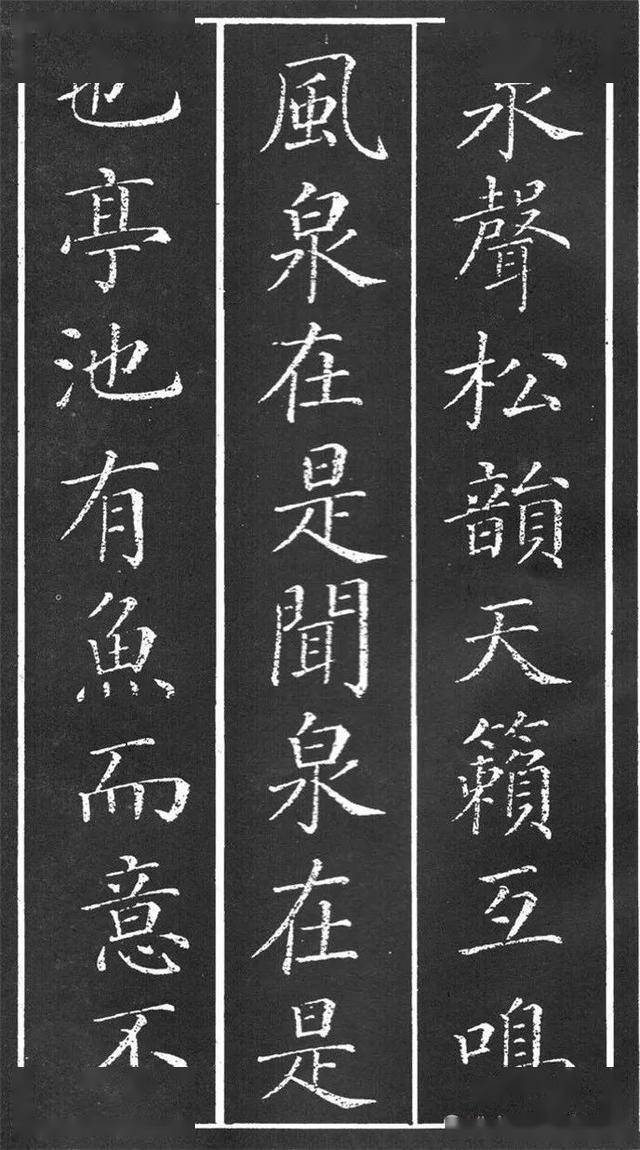 聲松韻天籟互
風泉在是聞泉在是
也亭池有魚而意不